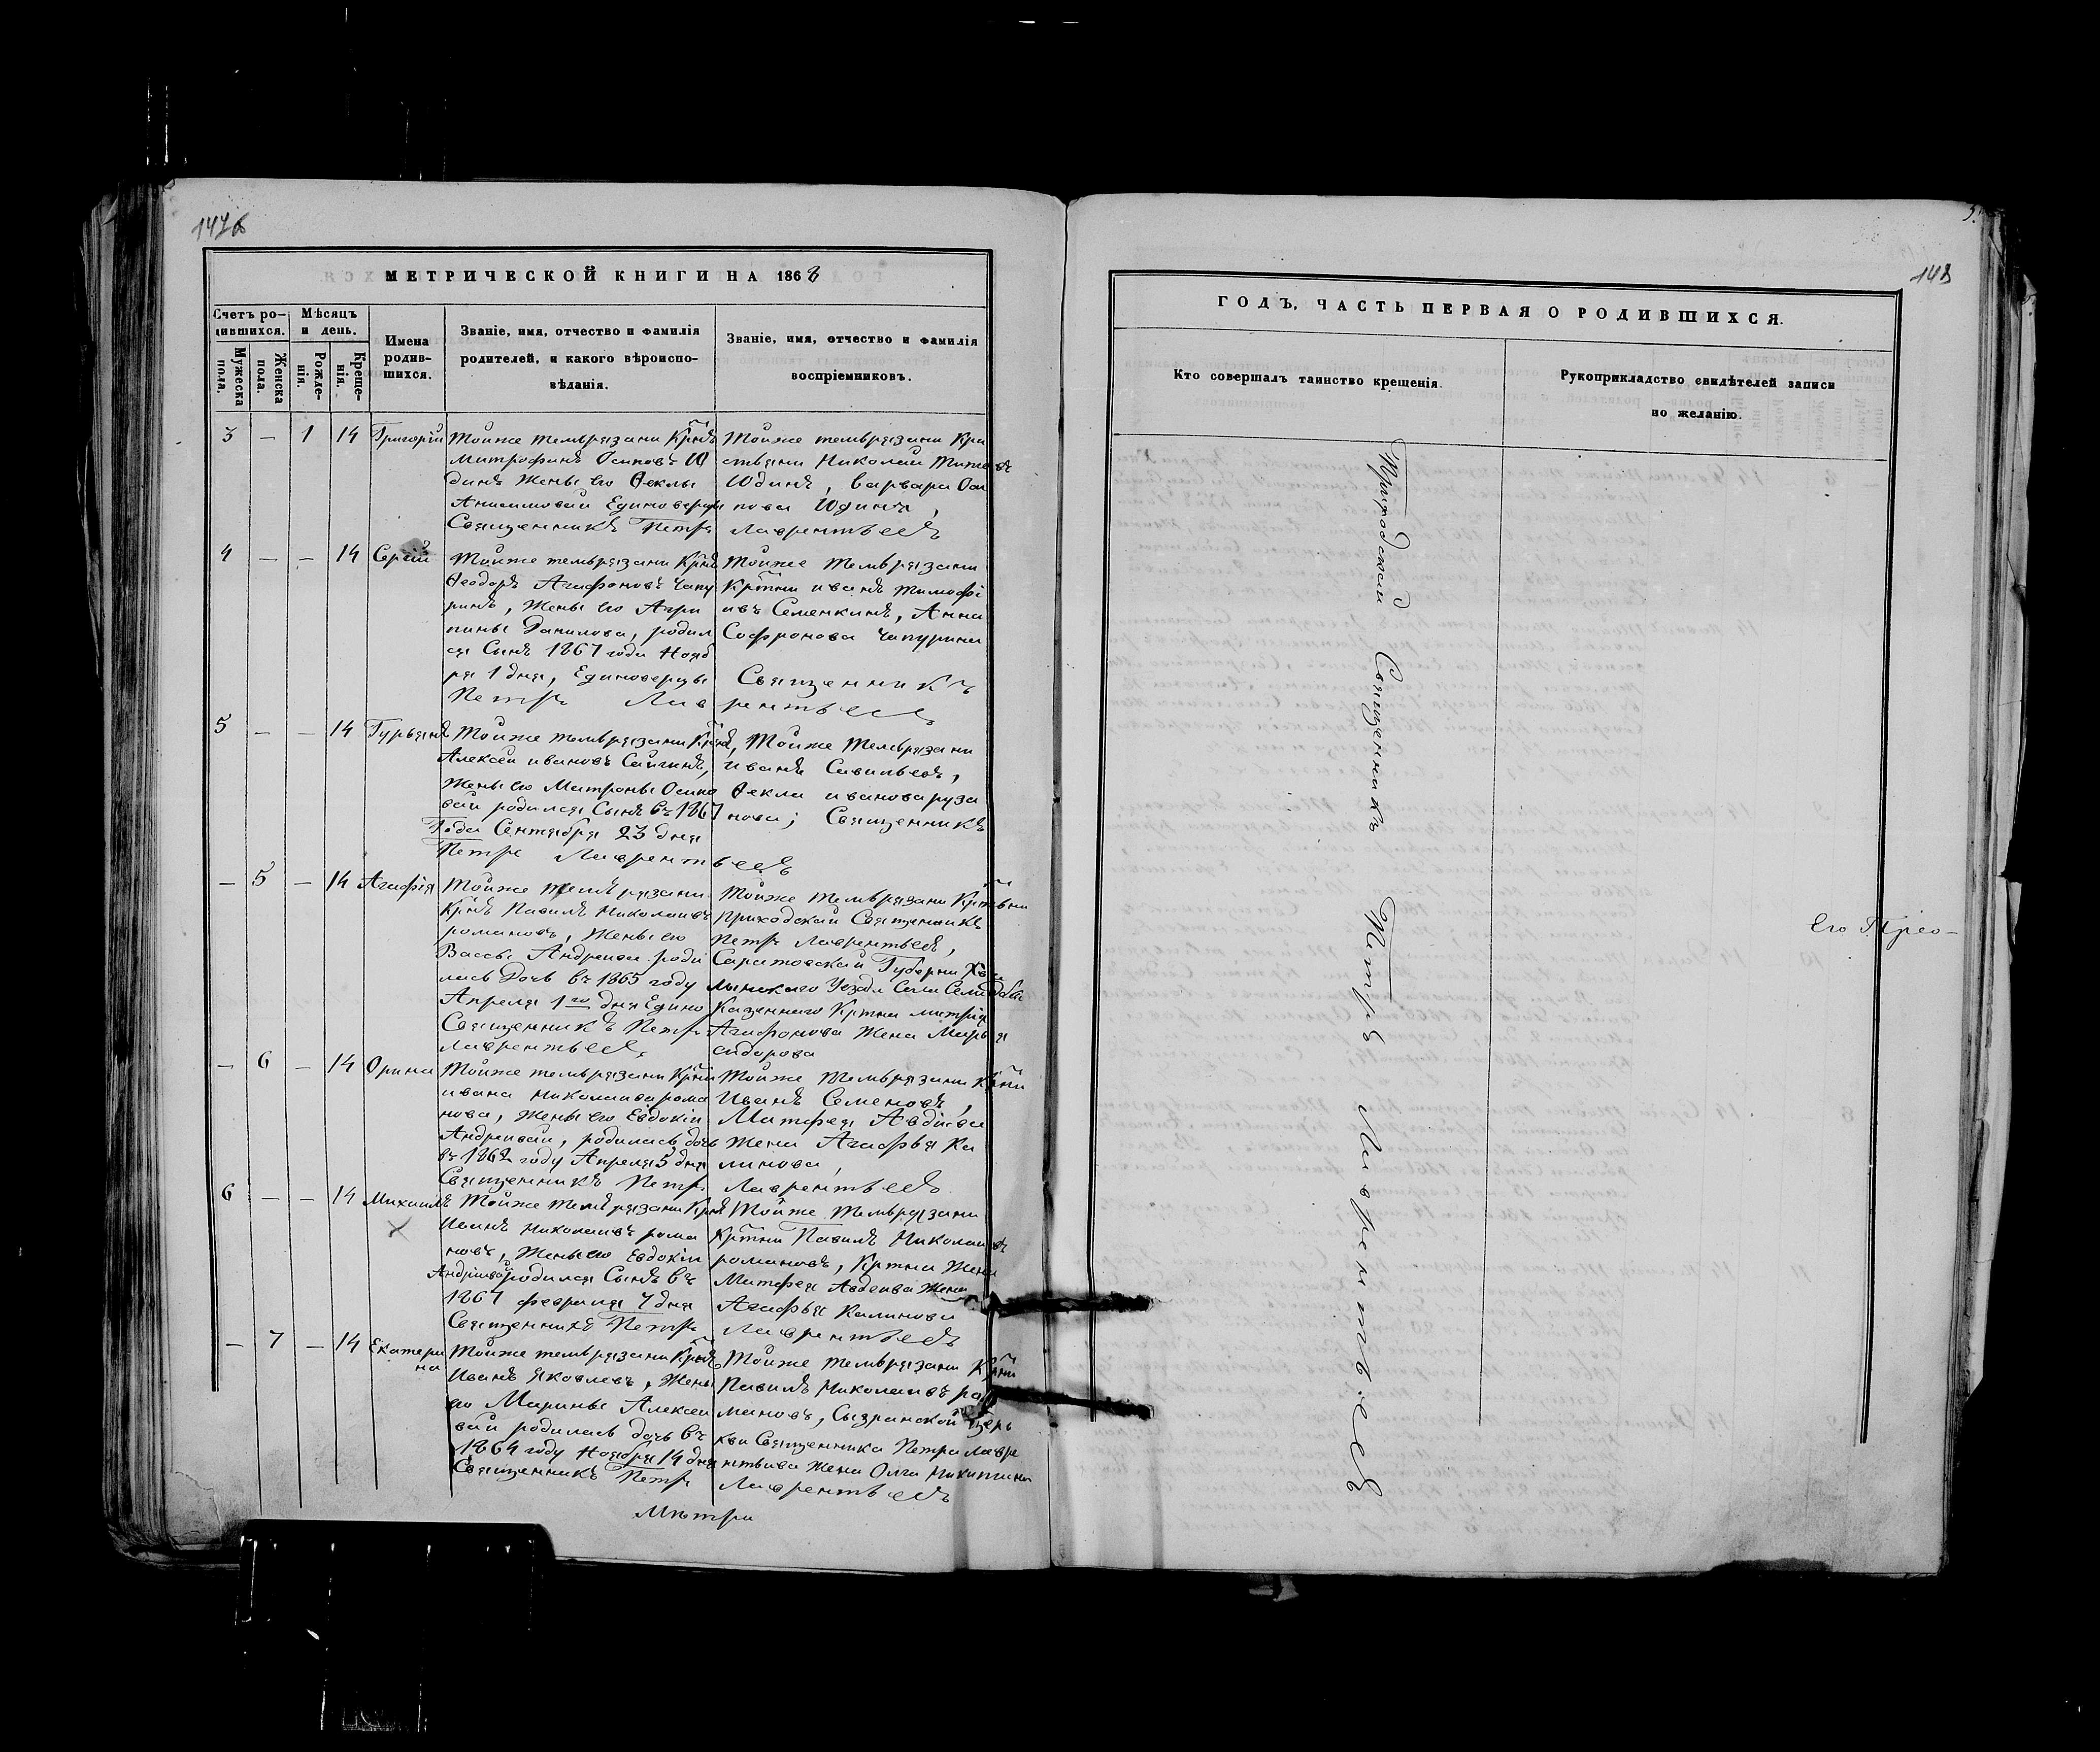 147б
МЕТРИЧЕСКОЙ КНИГИ НА 1868
Счетъ ро-
дившихся.
Мѣсяцъ
и день.
Мужеска
пола.
Женска
пола.
Рожде-
нія.
Креще-
нія.
Имена
родив-
шихся.
Званіе, имя, отчество и фамилія
родителей, и какого вѣроиспо-
вѣданія.
Званіе, имя, отчество и фамилія
воспріемниковъ.
3 — 1 14 Григорій
Тойже темьрязани Крнъ
Митрофанъ Осиповъ Ю
динъ Жены его Феклы
Анисимовай Единоверцы
Священникъ Петръ
Тойже темьрязани Кра
стьяни Николай Тимо
Юдинъ, Варвара Оси
пова Юдина,
Лаврентьевъ
4 — — 14 Сергій
Тойже темьрязани Крнъ
Феодоръ Агафоновъ Чапу
ринъ, Жены его Агри
пины Данилова, родил
ся Сынъ 1867 года Нояб
ря 1 дня, Единоверцы
Петръ Лав
Тойже Темьрязани
Кртни иванъ тимофі
ивъ Семенкинъ, Анна
Софронова Чапурина
Священникъ
рентьевъ
5 — — 14 Гурьянъ
Тойже темьрязани Крнъ,
Алексей ивановъ Сайгинъ,
Жены его Матроны Осипо
вай родился Сынъ въ 1867
Года Сентября 23 дня
Петръ Лаврентьевъ
Тойже Темьрязани
иванъ Савильевъ,
Фекла иванова руза
нова; Священникъ
— 5 — 14 Агафія
Тойже темьрязани
Крнъ Павилъ Николаивъ
романовъ, Жены его
Вассы Андриива роди
лась Дочь въ 1865 году
Апреля 1го дня Едино
Священникъ Петръ
Лаврентьевъ
Тойже Темьрязани
Приходскай Священникъ
Петръ Лаврентьевъ,
Саратовскай Губерни Хва
лынскаго Уезда Села
Казеннаго Кртна митрія
Агафонова Жена Марья
сидорова
— 6 — 14 Орина
Тойже темьрязани Крни
ивана николаива рома
нова, Жены его Евдокіи
Андриивай, родилась дочь
въ 1862 году Апреля 5 дня
Священникъ Петръ
Тойже Темьрязани Крни
Иванъ Семеновъ,
Матфея Авдіива
Жена Агафья Ка
линова,
Лаврентьевъ
6 — — 14 Михаилъ
Тойже темьрязани Крнъ
Иванъ Николаивъ рома
новъ, Жены его Евдокіи
Андріивай родился Сынъ въ
1867 февраля 7 дня
Священникъ Петръ
Тойже Темьрязани
Кртни Павилъ Николаивъ
романовъ, Кртна Жена
Матфея Авдеива Жена
Агафья Калинова
Лаврентьевъ
— 7 — 14 Екатери
на
Тойже темьрязани Крнъ
Иванъ Яковлевъ, Жены
его Марины Алексеи
вай родилась дочь въ
1864 году Ноября 14 дня
Священникъ Петръ
Тойже темьрязани Крни
Павилъ Николаивъ ро
мановъ, Сызранской Цер
кви Священника Петра Лавре
нтьива Жена Олга Никитина
Лаврентьевъ
Метри
ГОДЪ, ЧАСТЬ ПЕРВАЯ О РОДИВШИХСЯ.
Кто совершалъ таинство крещенія.
Рукоприкладство свидѣтелей записи
по желанію.
Приходскай Священникъ Петръ Лаврентьевъ
Его Прео-